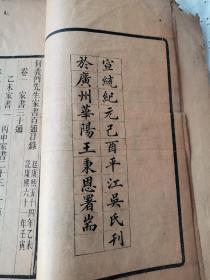 宣統紀元己酉平江吳氏刊
於廣州華陽王秉恩署耑
何義門先生家書百通目錄
卷一 家書三十通
起康熙五十四年乙未
訖康熙六十一年壬寅
乙未家書
丙申家書